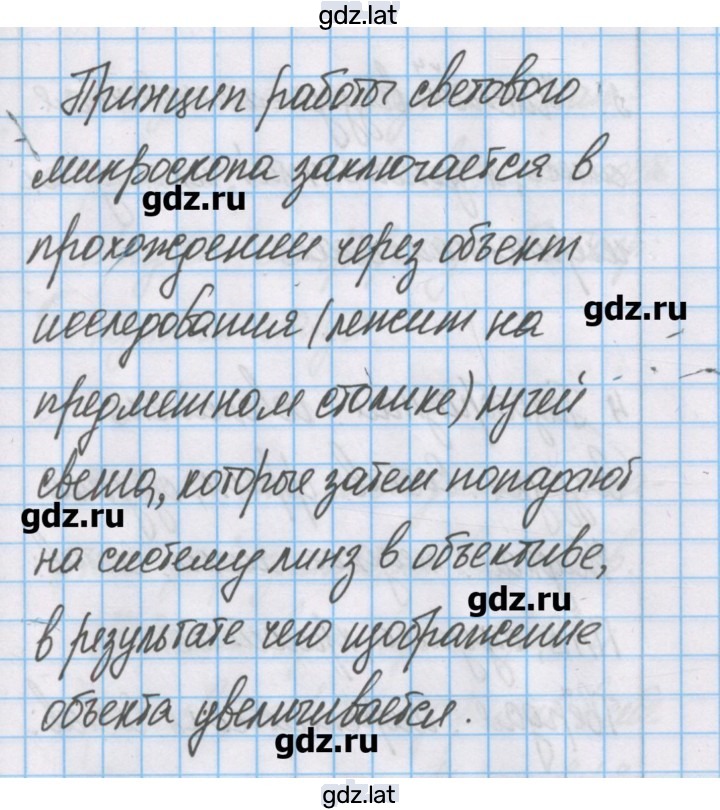 gdz.lat
Принцип работы светового
микроскопа заключается в
gdz.ru
прохождении через объект
gdz.ru
исследования (лежит на
предметном столике) лучей
света, которые затем попадают
gdz.ru
на систему линз в объективе,
gdz.ru
в результате чего изображение
объекта увеличивается.
gdz.ru
gdz.lat